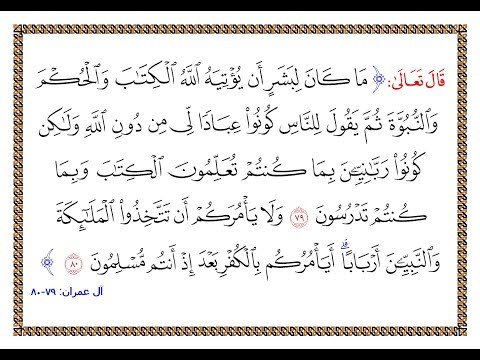 قَالَ تَعَالَىٰ: ﴿ مَا كَانَ لِبَشَرٍ أَن يُؤْتِيَهُ ٱللَّهُ ٱلْكِتَٰبَ وَٱلْحُكْمَ
وَٱلنُّبُوَّةَ ثُمَّ يَقُولَ لِلنَّاسِ كُونُوا۟ عِبَادًا لِّى مِن دُونِ ٱللَّهِ وَلَٰكِن
كُونُوا۟ رَبَّٰنِيِّۦنَ بِمَا كُنتُمْ تُعَلِّمُونَ ٱلْكِتَٰبَ وَبِمَا
كُنتُمْ تَدْرُسُونَ ٧٩ وَلَا يَأْمُرَكُمْ أَن تَتَّخِذُوا۟ ٱلْمَلَٰٓئِكَةَ
وَٱلنَّبِيِّۦنَ أَرْبَابًا ۗ أَيَأْمُرُكُم بِٱلْكُفْرِ بَعْدَ إِذْ أَنتُم مُّسْلِمُونَ ٨٠ ﴾
آل عمران: ٧٩-٨٠